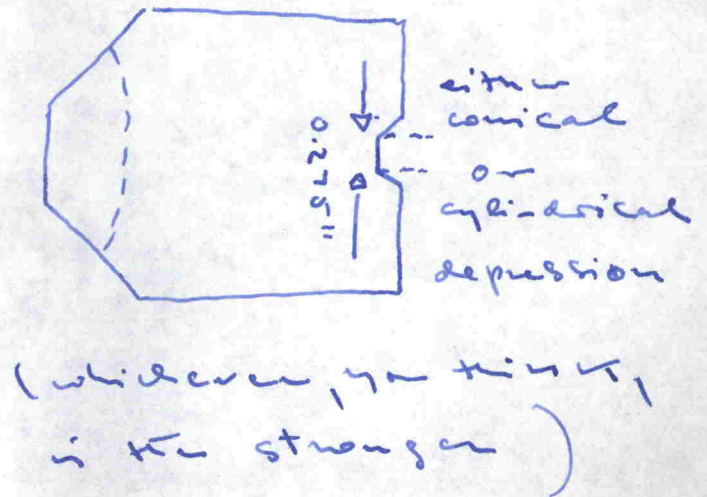 either
conical
or
cylindrical
depression
0.275"
(whichever, you think,
is the stronger)